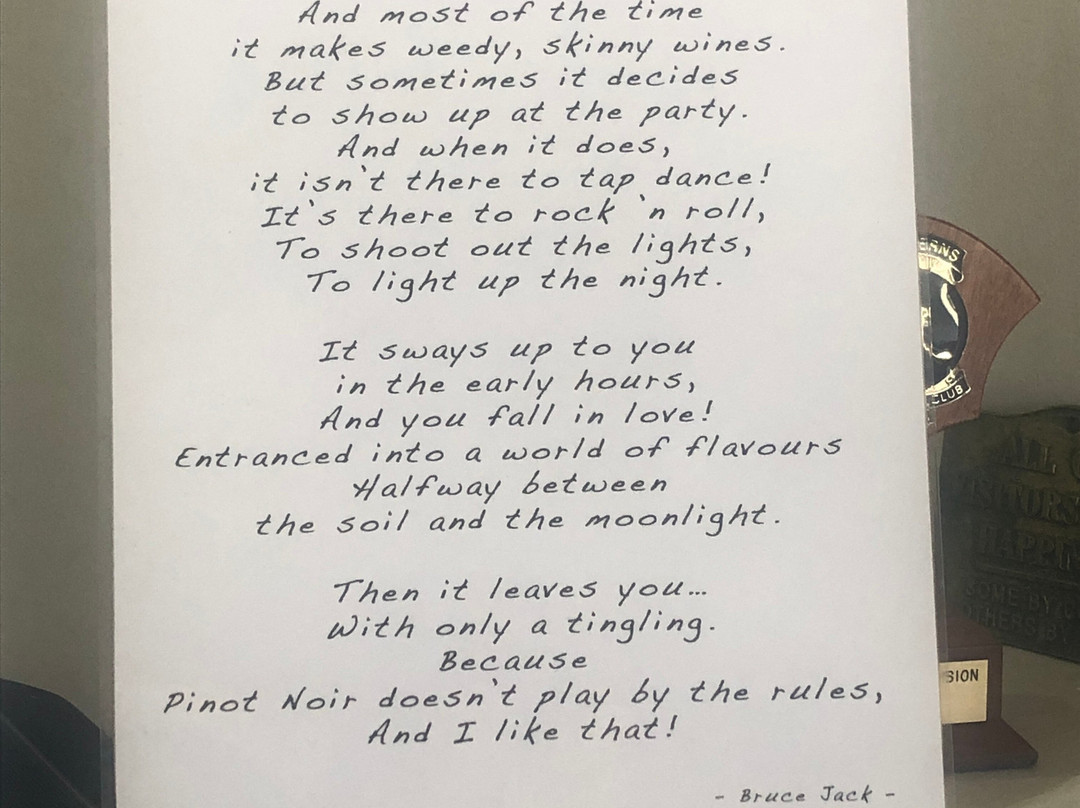 And most of the time
it makes weedy, skinny wines.
But sometimes it decides
to show up at the party.
And when it does,
it isn't there to tap dance!
It's there to rock 'n roll,
To shoot out the lights,
To light up the night.
It sways up to you
in the early hours,
And you fall in love!
Entranced into a world of flavours
Halfway between
the soil and the moonlight.
Then it leaves you...
With only a tingling.
Because
Pinot Noir doesn't play by the rules,
And I like that!
- Bruce Jack -
CLUB
ALL
SOME BY